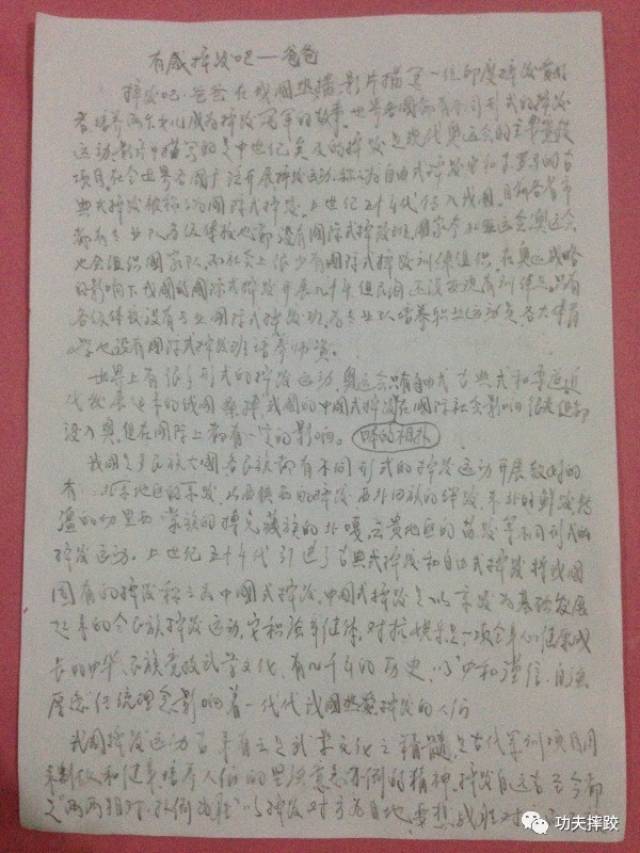 有感摔跤吧—爸爸
摔跤吧·爸爸在我国热播.影片描写一位印度摔跤爱好
者培养两个女儿成为摔跤冠军的故事.世界各国都有不同形式的摔跤
运动.影片中描写的是的摔跤是现代奥运会的主要竞技
项目,在全世界各国广泛开展摔跤运动.称之为自由式摔跤.它和的古
典式摔跤被称之为国际式摔跤.上世纪五十年代传入我国.目前各省市
都有专业队.各级体校也都设有国际式摔跤班.国家参加亚运会奥运会
也会组织国家队.而社会上很少有国际式摔跤训练组织.在奥运战略
的影响下我国的国际式摔跤开展几十年但民间还没有训练点.只有
各级体校设有专业国际式摔跤班.为专业队培养职业运动员各大体育
学也设有国际式摔跤班培养师资.
世界上有很多形式的摔跤运动.奥运会只有自由式古典式和
代发展起来的.我国的中国式摔跤在国际社会影响很大但都
没入奥.但在国际上都有一定的影响. 日本的相扑
我国是多民族大国各民族都有不同形式的摔跤运动开展较好的
有:北京地区的京跤.山西的摔跤西北回族的绊跤.东北的鲜族
疆的切里西蒙族的搏克藏族的北嘎.云贵地区的苗跤等不同形式的
摔跤运动.上世纪五十年代引进了古典式摔跤和自由式摔跤将我国
固有的摔跤称之为中国式摔跤.中国式摔跤是以京跤为基础发展
起来的全民族摔跤运动.健体.对抗快乐是一项全身心健康成
长的中华民族竞技武学文化.有几千年的历史.以"中和谨信.自强
厚德"传统理念影响着一代代我国热爱摔跤的人们
我国摔跤运动古来有之是武学文化之精髓.是古代军训项目用
来制敌和健身.培养人们的坚决意志不倒的精神.摔跤自远古至今都
是"两两相对.扑倒为胜"以摔跤对方为目地.要想战胜对
功夫摔跤